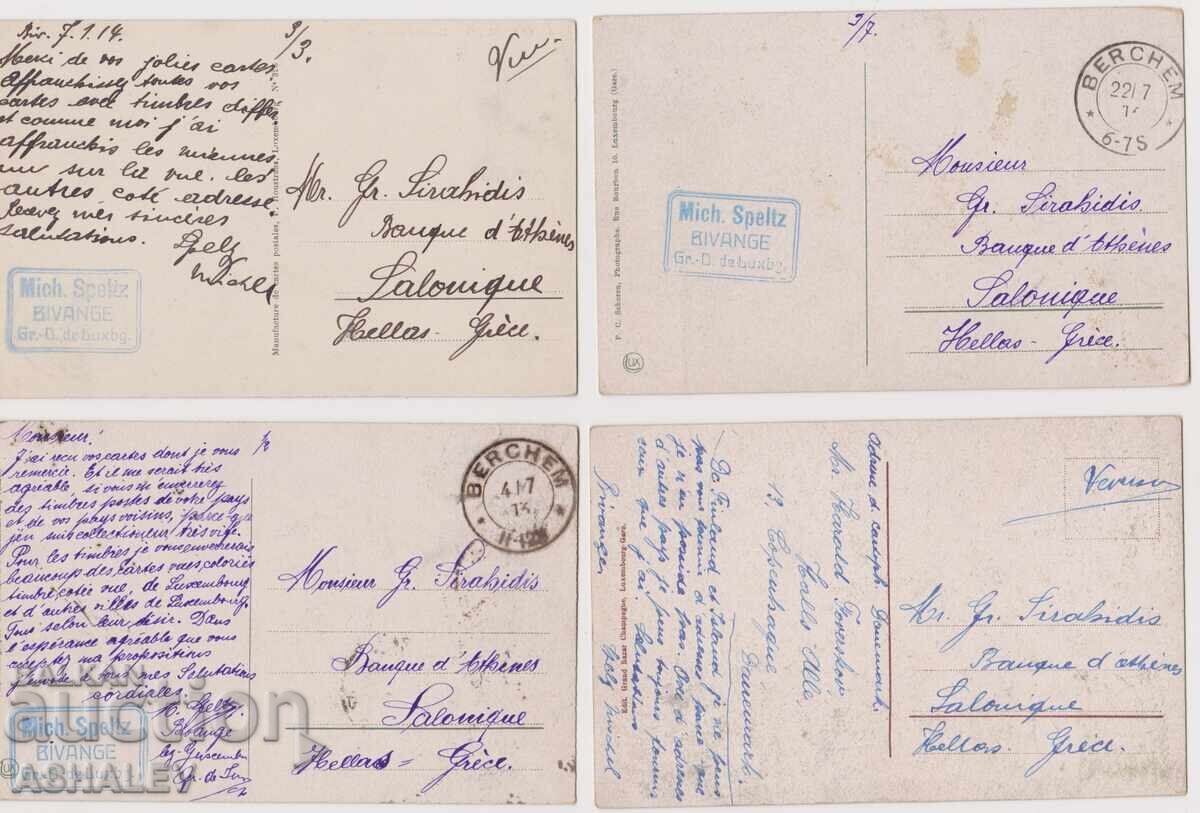 Biv. 7.1.14.
Merci de vos jolies cartes
Affranchissez toutes vos
cartes avec timbres differ
et comme moi j'ai
affranchis les miennes
sur la vue. les
autres coté adresse
Recevez mes sincères
salutations.
Speltz
Michel
Mich. Speltz
BIVANGE
Gr.-D. de Luxbg.
Manufacture de cartes postales,
3/3.
Vue
Mr. Gr. Sirahidis
Banque d'Athènes
Salonique
Hellas - Grèce.
P. C. Schoren, Photographe, Rue Bourbon 10, Luxembourg (Gare).
3/7.
BERCHEM
22 7
14
6-7S
Mich. Speltz
BIVANGE
Gr.-D. de Luxbg.
Monsieur
Gr. Sirahidis
Banque d'Athènes
Salonique
Hellas - Grèce.
LUX
Monsieur!
J'ai reçu vos cartes dont je vous
remercie. Et il me serait très
agréable, si vous m'enverrez
des timbres postes de votre pays
et de vos pays voisins, parce-que
j'en suis collectionneur
Pour les timbres je vous enverrais
beaucoup des cartes vues, colories
timbre, cotée vue, de Luxembourg
et d'autres villes de Luxembourg.
Tous selon leur désir. Dans
l'espérance agréable que vous
acceptez ma proposition
J'envoie à tous mes Salutations
cordiales.
M. Speltz
Bivange
Gr. de
BERCHEM
4 7
13
11-12
Monsieur Gr. Sirahidis
Banque d'Athènes
Salonique
Hellas = Grèce.
Mich. Speltz
BIVANGE
Gr.-D. de Luxbg.
BALKAN
auction
ASHALEY
De Finland et Island je ne peux
pas vous fournir d'adresses parce que
je n'en possède pas. Des adresses
d'autres pays je peux toujours fournir
ceux que j'ai. Salutations
Bivange Speltz Michel
Edit. Grand Bazar Champagne, Luxembourg-Gare.
Adresse d'cartoph. Danemark
Mr. Harald
Halls Alle
13, Copenhague
Danemark.
Verso
Mr Gr. Sirahidis
Banque d'Athènes
Salonique
Hellas. Grèce.